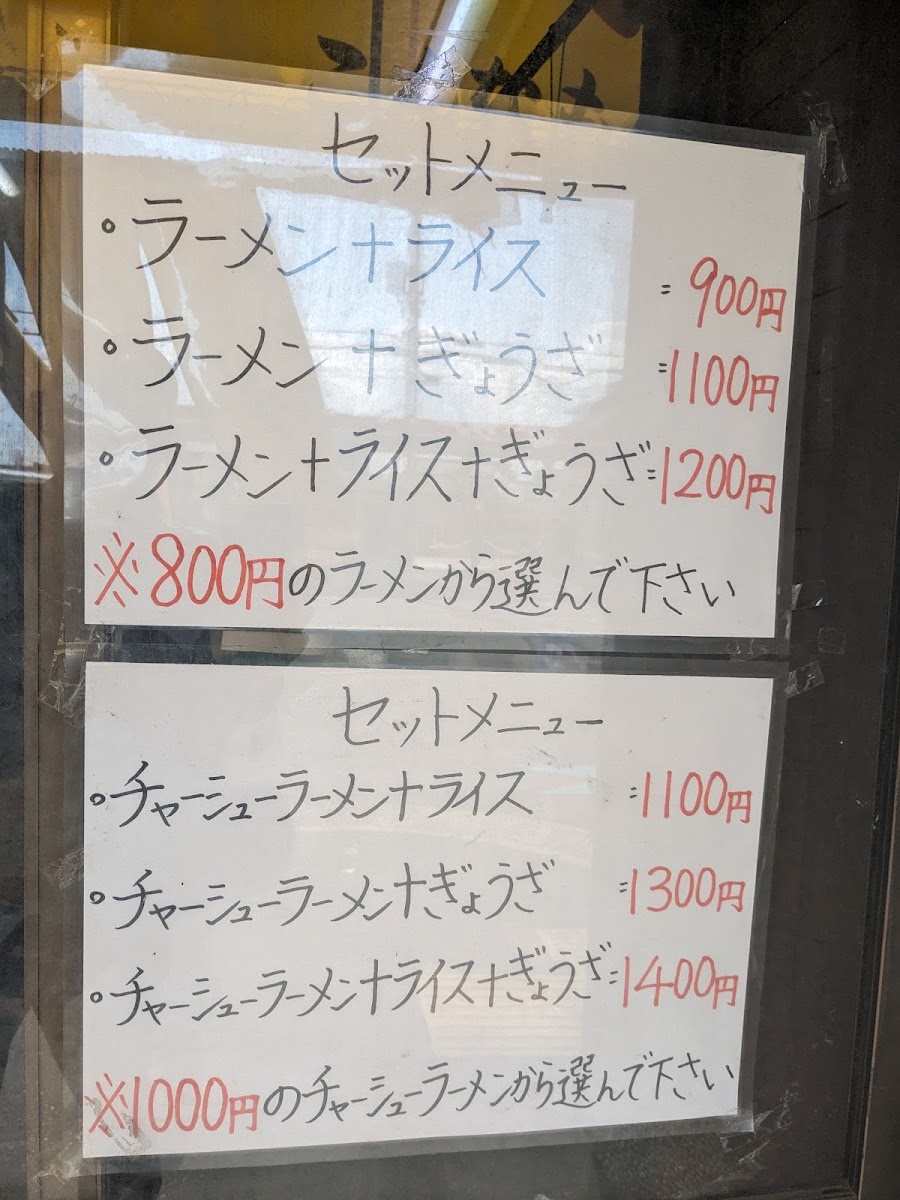 セットメニュー
・ラーメン+ライス = 900円
・ラーメン+ぎょうざ = 1100円
・ラーメン+ライス+ぎょうざ = 1200円
※800円のラーメンから選んで下さい
セットメニュー
・チャーシューラーメン+ライス = 1100円
・チャーシューラーメン+ぎょうざ = 1300円
・チャーシューラーメン+ライス+ぎょうざ = 1400円
※1000円のチャーシューラーメンから選んで下さい